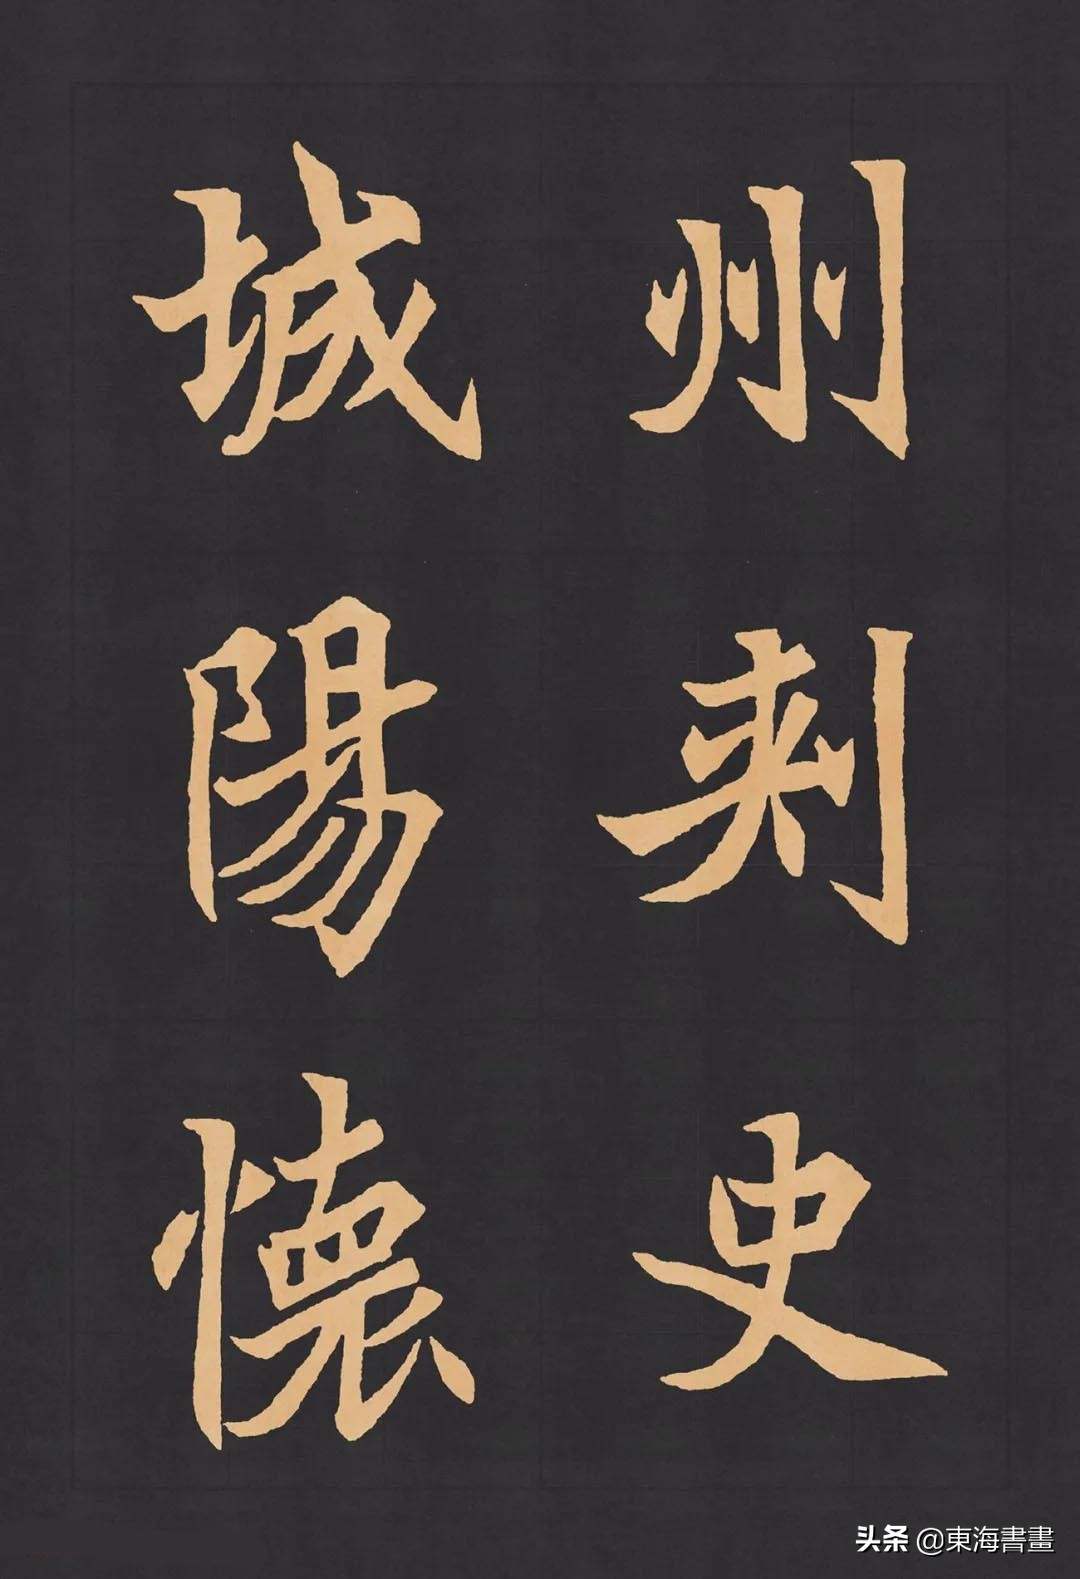 州刺史
城陽懷
头条 @東海書畫